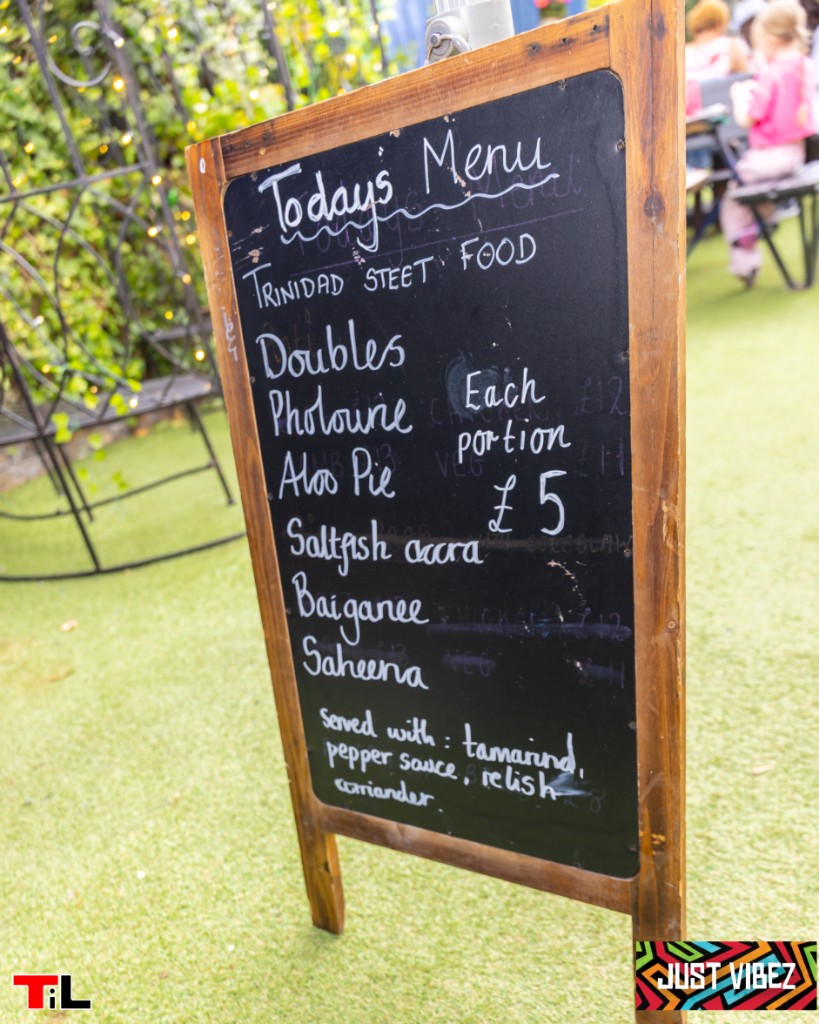 Today's Menu
TRINIDAD STEET FOOD
Doubles
Pholourie
Aloo Pie
Saltfish accra
Baiganee
Saheena
Each
portion
£5
Served with: tamarind,
pepper sauce, relish
corriander.
TiL
JUST VIBEZ